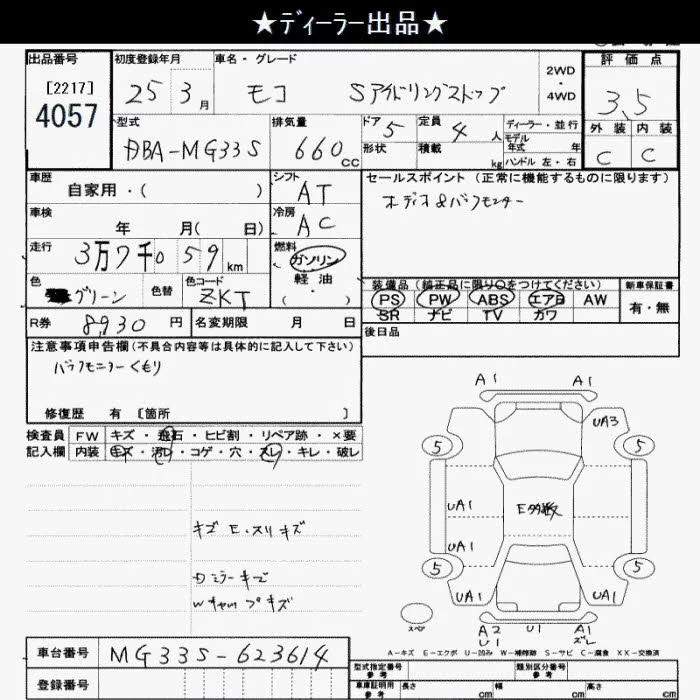 ★ディーラー出品★
出品番号 初度登録年月 車名・グレード 評価点
[2217] 25 3月 モコ Sアイドリングストップ 2WD・4WD 3.5
4057
型式 排気量 ドア 5 定員 4人 ディーラー・並行 外装 内装
DBA-MG33S 660cc 形状 積載 kg モデル年式 年 C C
ハンドル 左・右
車歴 シフト セールスポイント (正常に機能するものに限ります)
自家用・( ) AT
車検 冷房
年 月( 日) AC
走行 燃料
3万7千059km ガソリン
軽油
色 グリーン 色替 色コード ZKT ・( )
装備品 (純正品に限り○をつけてください) 新車保証書
PS PW ABS エアB AW 有・無
SR ナビ TV カワ
R券 8,930円 名変期限 月 日 後日品
注意事項申告欄(不具合内容等は具体的に記入して下さい)
修復歴 有 [箇所 ]
検査員 FW キズ・飛石・ヒビ割・リペア跡・×要
記入欄 内装 キズ・汚レ・コゲ・穴・スレ・キレ・破レ
A1 A1
UA3
5 5
UA1 E多数
UA1
5 5
UA1 UA1
スペア
A2 U1 A1
U1 ズレ
A-キズ E-エクボ U-凹み W-補修跡 S-サビ C-腐食 XX-交換済
車台番号 MG33S-623614
型式指定番号 類別区分番号
登録番号 車庫証明用参考 長さ cm 幅 cm 高さ cm